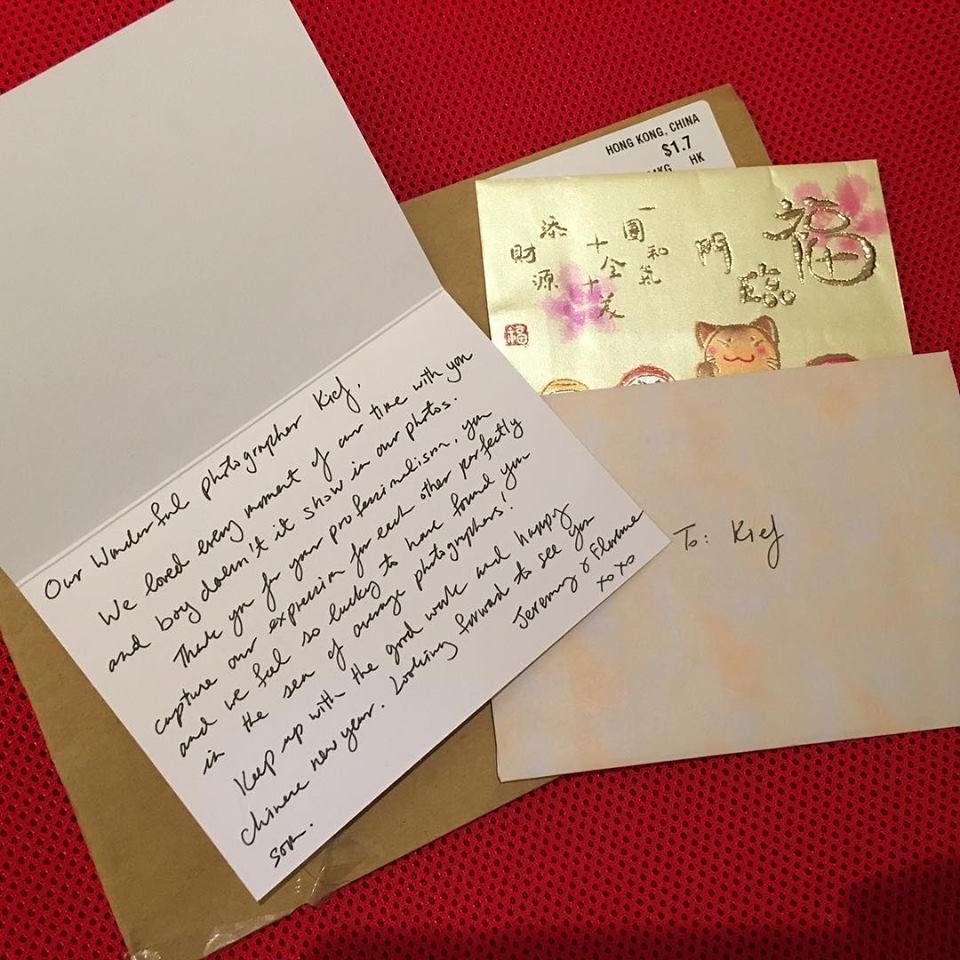 Our Wonderful photographer Kief,
We loved every moment of our time with you
and boy doesn't it show in our photos.
Thank you for your professionalism, you
capture our expression for each other perfectly
and we feel so lucky to have found you
in the sea of average photographers!
Keep up with the good work and happy
Chinese new year. Looking forward to see you
soon.
Jeremy & Florence
xoxo
HONG KONG, CHINA
$1.7
KG HK
福
臨
門
一團和氣
十全十美
添
財源
福
To: Kief